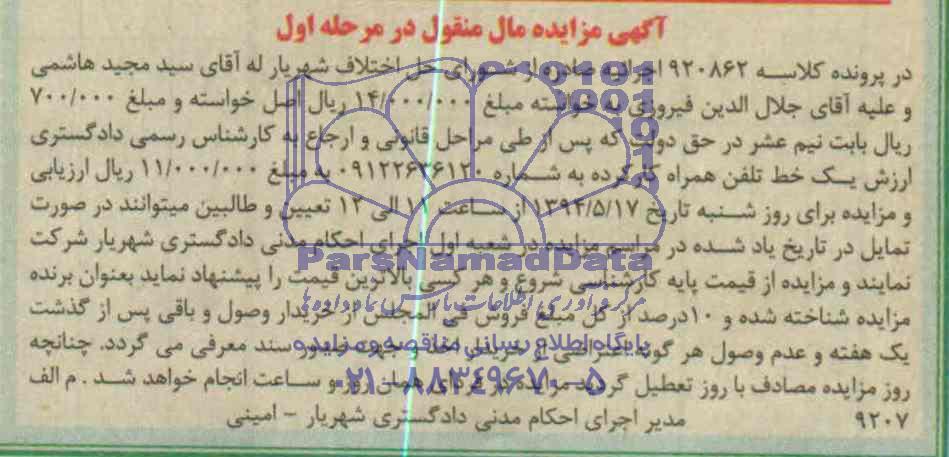 آگهی مزایده مال منقول در مرحله اول
در پرونده کلاسه ۹۲۰۸۶۲ اجرائیه صادره از شورای حل اختلاف شهریار له آقای سید مجید هاشمی
و علیه آقای جلال الدین فیروزی به خواسته مبلغ ۱۴/۰۰۰/۰۰۰ ریال اصل خواسته و مبلغ ۷۰۰/۰۰۰
ریال بابت نیم عشر در حق دولت که پس از طی مراحل قانونی و ارجاع به کارشناس رسمی دادگستری
ارزش یک خط تلفن همراه کارکرده به شماره به مبلغ ۱۱/۰۰۰/۰۰۰ ریال ارزیابی
و مزایده برای روز شنبه تاریخ ۱۳۹۳/۵/۱۷ از ساعت ۱۱ الی ۱۲ تعیین و طالبین میتوانند در صورت
تمایل در تاریخ یاد شده در مراسم مزایده در شعبه اول اجرای احکام مدنی دادگستری شهریار شرکت
نمایند و مزایده از قیمت پایه کارشناسی شروع و هر کسی بالاترین قیمت را پیشنهاد نماید بعنوان برنده
مزایده شناخته شده و ۱۰درصد از کل مبلغ فروش فی المجلس از خریدار وصول و باقی پس از گذشت
یک هفته و عدم وصول هر گونه اعتراضی از خریدار اخذ و جهت صدور سند معرفی می گردد. چنانچه
روز مزایده مصادف با روز تعطیل گردید مزایده در فردای همان روز و ساعت انجام خواهد شد . م الف
۹۲۰۷
مدیر اجرای احکام مدنی دادگستری شهریار – امینی
ParsNamadData
مرکز فرآوری اطلاعات پارس نماد داده ها
پایگاه اطلاع رسانی مناقصه و مزایده
۰۲۱-۸۸۳۴۹۶۷۰-۵